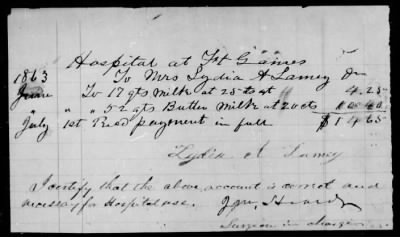 Hospital at Ft Gaines
1863 To Mrs Lydia A Lamey Dr
June To 17 qts milk at 25 cts qt 4.25
" " 52 qts Butter Milk at 20 cts 10.40
July 1st Recd payment in full $14.65
Lydia A Lamey
I certify that the above account is correct and
necessary for Hospital use. Jno,
Surgeon in charge